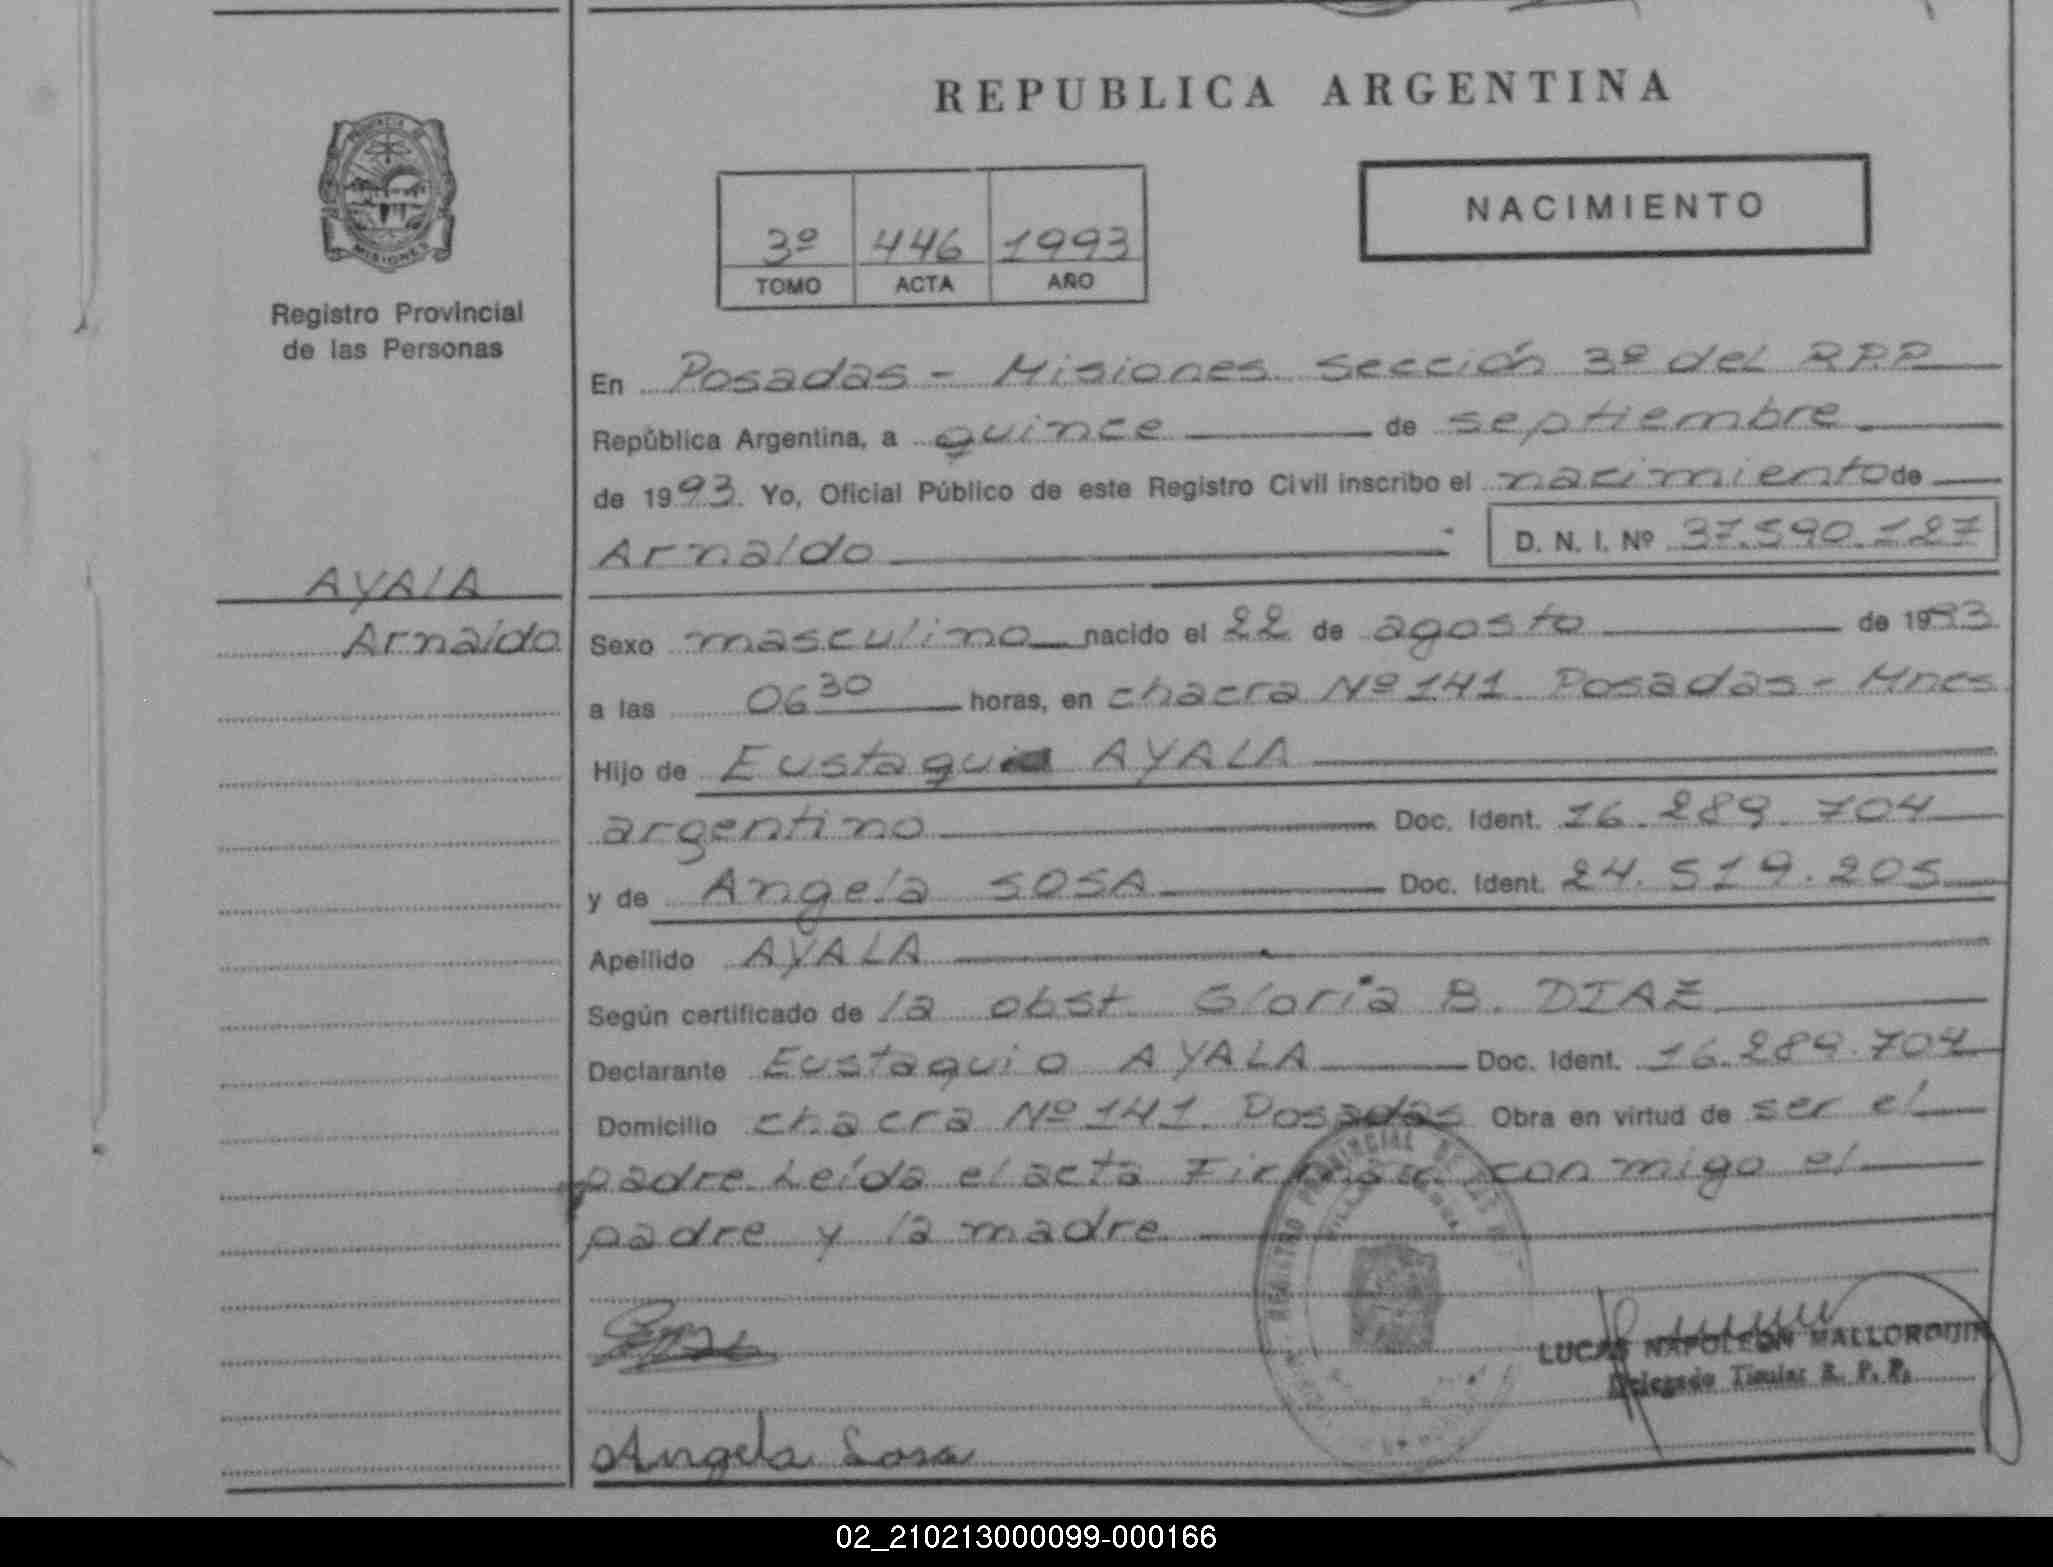 REPUBLICA ARGENTINA
NACIMIENTO
3º 446 1993
TOMO ACTA AÑO
PROVINCIA DE
MISIONES
Registro Provincial
de las Personas
En Posadas - Misiones sección 3º del R.P.P
República Argentina, a quince de septiembre
de 1993. Yo, Oficial Público de este Registro Civil inscribo el nacimiento de
Arnaldo D. N. I. Nº 37.590.127
AYALA
Arnaldo
Sexo masculino nacido el 22 de agosto de 1993
a las 06 30 horas, en chacra Nº 141 Posadas - Mnes
Hijo de Eustaquio AYALA
argentino Doc. Ident. 16.289.704
y de Angela SOSA Doc. Ident. 24.519.205
Apellido AYALA
Según certificado de la obst. Gloria B. DIAZ
Declarante Eustaquio AYALA Doc. Ident. 16.289.704
Domicilio chacra Nº 141. Posadas Obra en virtud de ser el
padre. Leída el acta Firman conmigo el
padre y la madre
REGISTRO PROVINCIAL DE LAS
LUCAS NAPOLEON MALLORQUIN
Delegado Titular R. P. P.
Angela Sosa
02_210213000099-000166